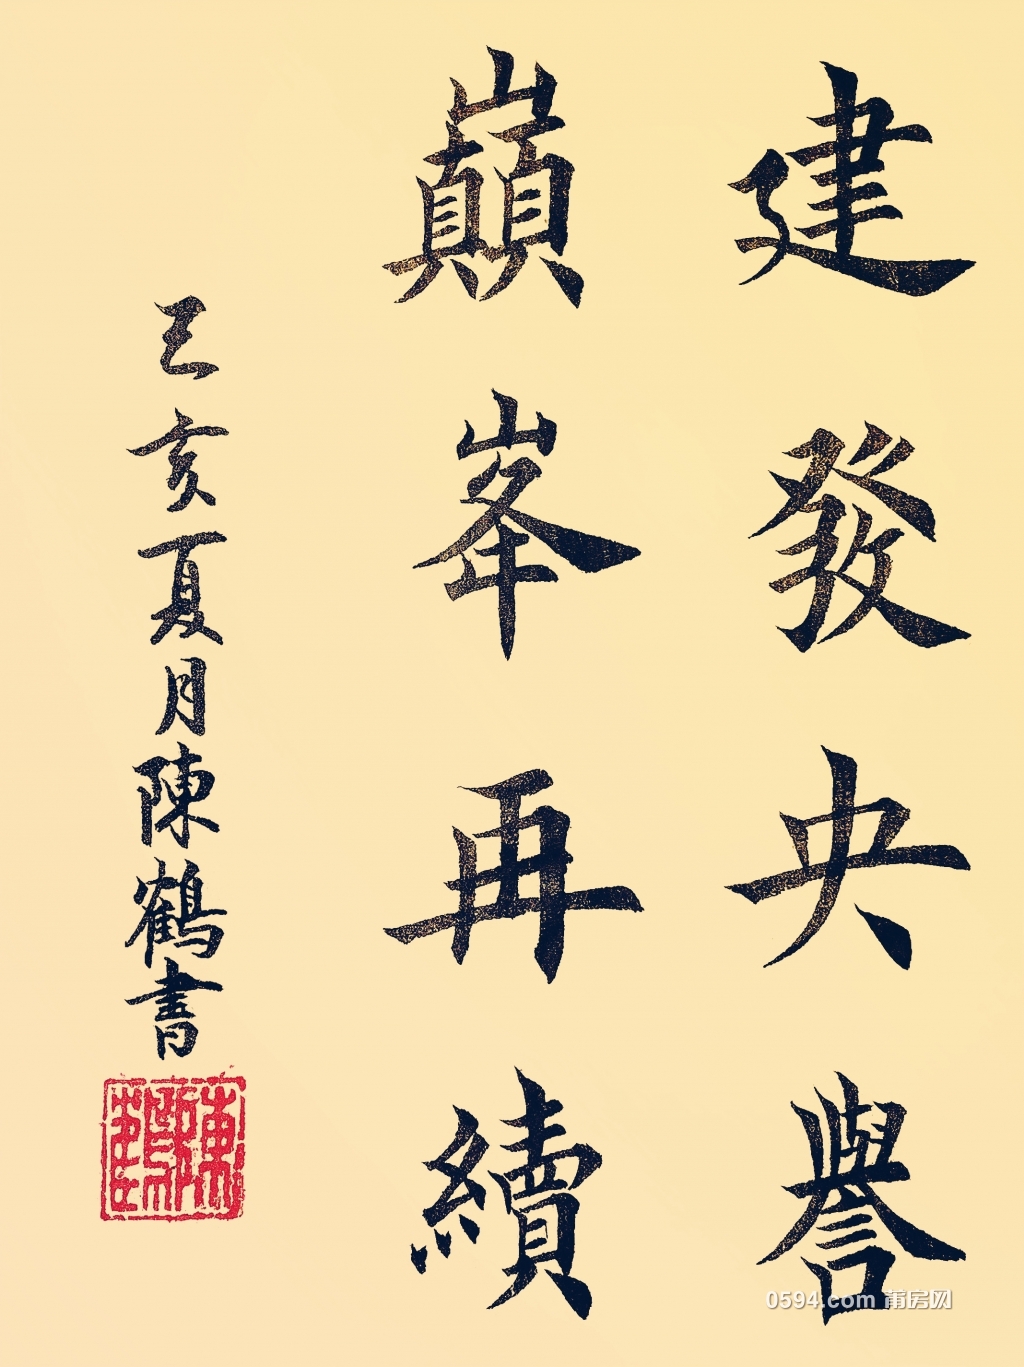 建發央譽
巔峯再續
己亥夏月陳鶴書
0594.com 莆房网